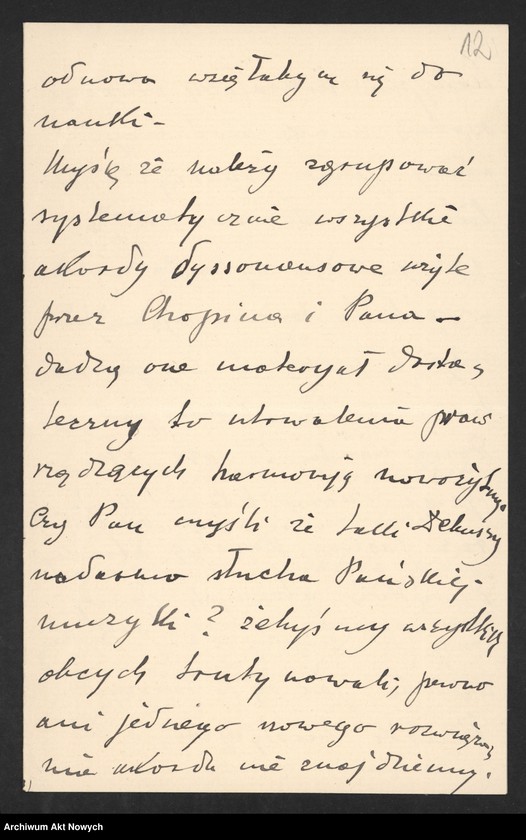 12
odnowa wzięłabym się do
nauki -
Myślę że należy zgrupować
systematycznie wszystkie
akordy dyssonansowe użyte
przez Chopina i Pana -
dadzą one materyał dosta,
teczny do utrwalenia praw
rządzących harmonją nowożytną.
Czy Pan myśli że taki Debussy
nadarmo słucha Pańskiej
muzyki? żebyśmy wszystkich
obcych
ani jednego nowego rozwiąza,
nia akordu nie znajdziemy.
Archiwum Akt Nowych